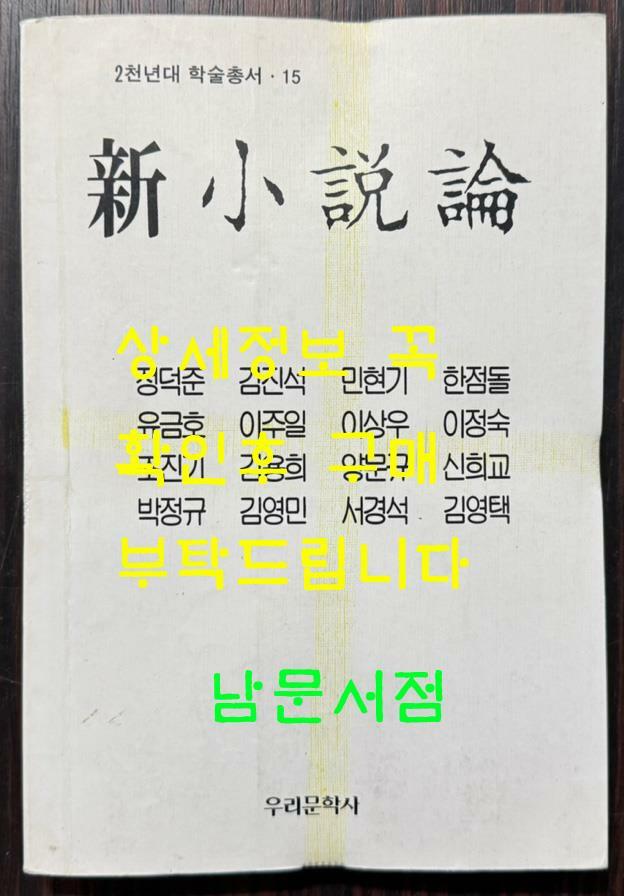 2천년대 학술총서 · 15
新小説論
상세정보 꼭
정덕준 김진석 민현기 한점돌
유금호 이주일 이상우 이정숙
확인후 구매
김용희 양문규 신희교
박정규 김영민 서경석 김영택
부탁드립니다
남문서점
우리문학사